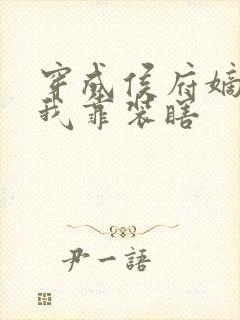 穿成侯府嫡
我靠装瞎
尹一語